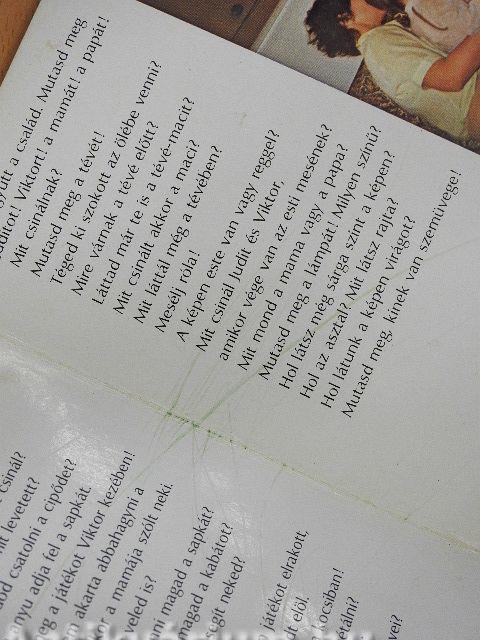 együtt a család. Mutasd meg
Juditot! Viktort! a mamát! a papát!
Mit csinálnak?
Mutasd meg a tévét!
Téged ki szokott az ölébe venni?
Mire várnak a tévé előtt?
Láttad már te is a tévé-macit?
Mit csinált akkor a maci?
Mit láttál még a tévében?
Mesélj róla!
A képen este van vagy reggel?
Mit csinál Judit és Viktor,
amikor vége van az esti mesének?
Mit mond a mama vagy a papa?
Mutasd meg a lámpát! Milyen színű?
Hol látsz még sárga színt a képen?
Hol az asztal? Mit látsz rajta?
Hol látunk a képen virágot?
Mutasd meg, kinek van szemüvege!
csinál?
mit levetett?
csatolni a cipődet?
adja fel a sapkát.
a játékot Viktor kezében!
akarta abbahagyni a
a mamája szólt neki.
veled is?
magad a sapkát?
magad a kabátot?
segít neked?
játékot elrakott,
elő!
kocsiban!